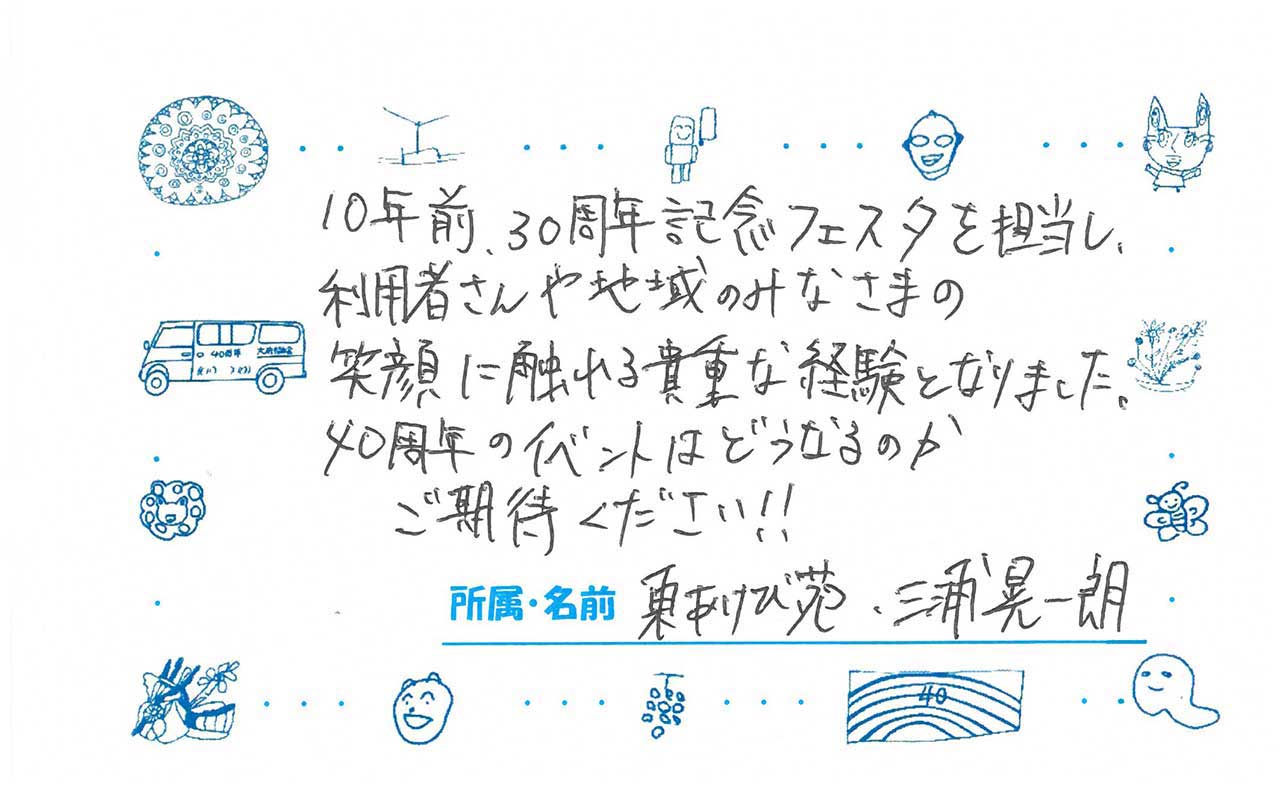 10年前、30周年記念フェスタを担当し、
利用者さんや地域のみなさまの
笑顔に触れる貴重な経験となりました。
40周年
40周年のイベントはどうなるのか
ご期待ください!!
所属・名前 東あけび苑・三浦晃一朗
40